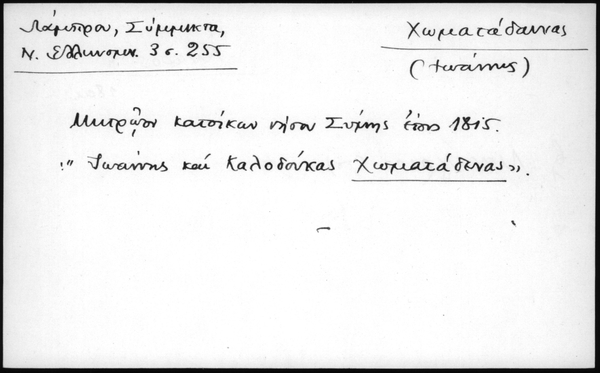 Λάμπρου, Σύμμικτα,
Ν. Ελληνομν. 3 σ. 255
Χωματάδαινας
(Ἰωάννης)
Μητρῶον κατοίκων νήσου Σύμης ἔτους 1815.
"Ἰωάννης καί Καλοδούκας Χωματάδενας».